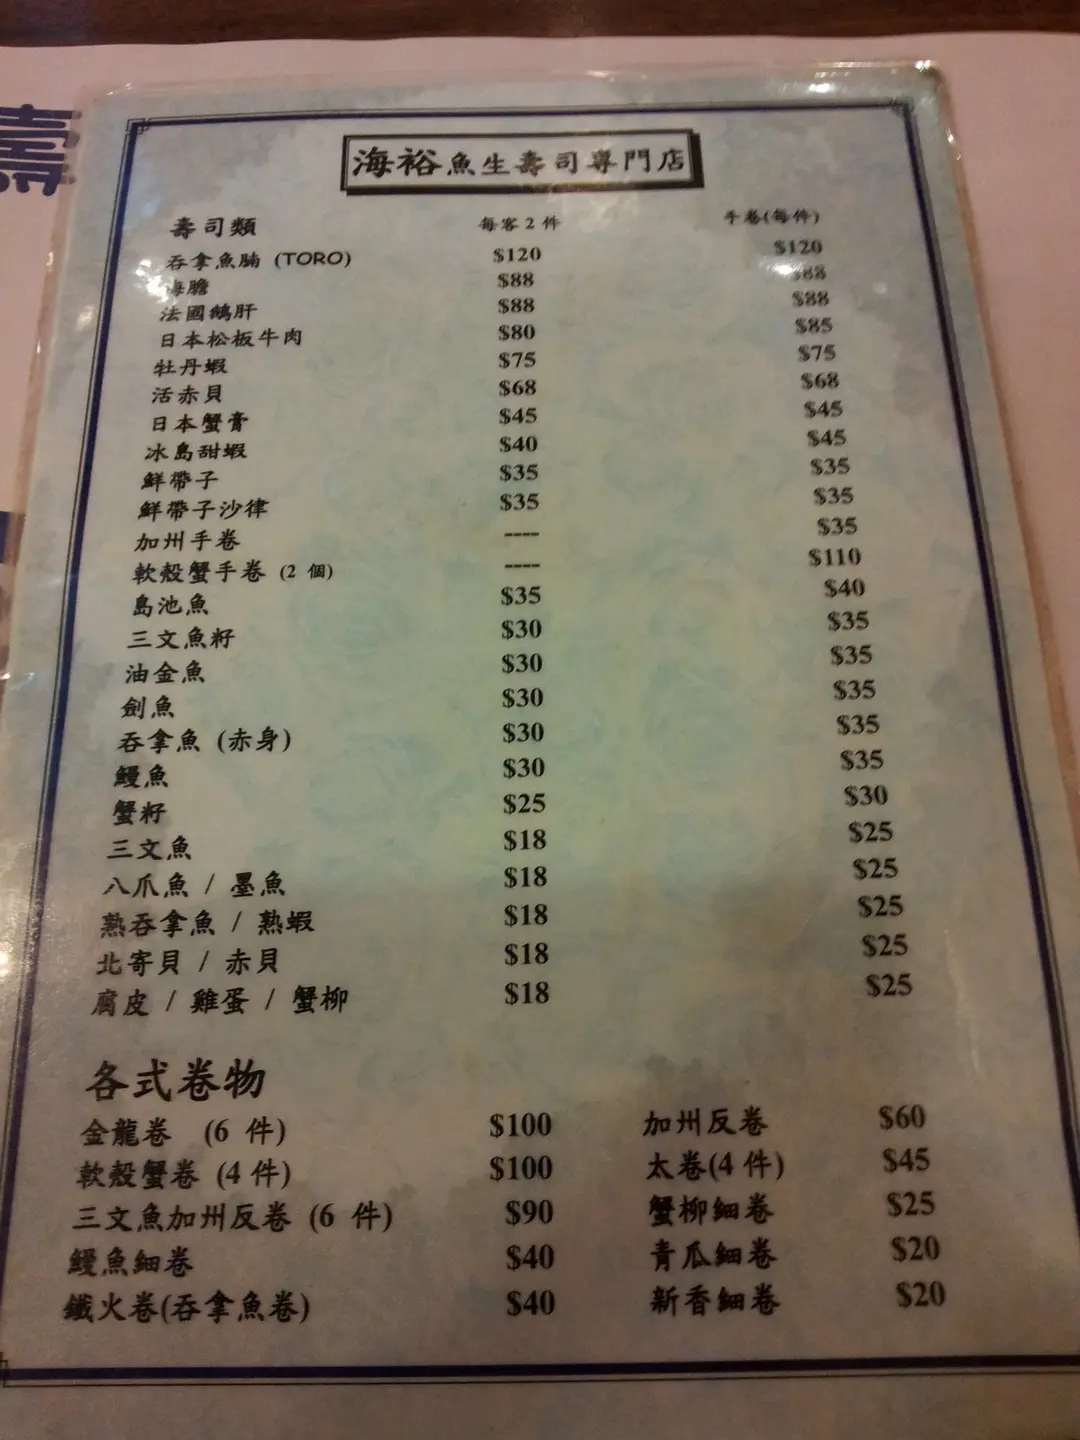 壽
海裕魚生壽司專門店
壽司類 每客 2 件 手卷(每件)
吞拿魚腩 (TORO) $120 $120
海膽 $88 $88
法國鵝肝 $88 $88
日本松板牛肉 $80 $85
牡丹蝦 $75 $75
活赤貝 $68 $68
日本蟹膏 $45 $45
冰島甜蝦 $40 $45
鮮帶子 $35 $35
鮮帶子沙律 $35 $35
加州手卷 ---- $35
軟殼蟹手卷 (2 個) ---- $110
島池魚 $35 $40
三文魚籽 $30 $35
油金魚 $30 $35
劍魚 $30 $35
吞拿魚 (赤身) $30 $35
鰻魚 $30 $35
蟹籽 $25 $30
三文魚 $18 $25
八爪魚 / 墨魚 $18 $25
熟吞拿魚 / 熟蝦 $18 $25
北寄貝 / 赤貝 $18 $25
腐皮 / 雞蛋 / 蟹柳 $18 $25
各式卷物
金龍卷 (6 件) $100 加州反卷 $60
軟殼蟹卷 (4 件) $100 太卷(4 件) $45
三文魚加州反卷 (6 件) $90 蟹柳細卷 $25
鰻魚細卷 $40 青瓜細卷 $20
鐵火卷(吞拿魚卷) $40 新香細卷 $20